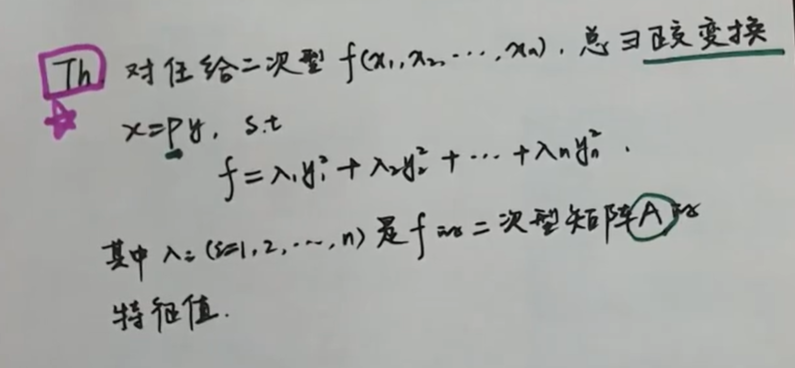 Th. 对任给二次型 f(x₁,x₂,⋯,xn), 总∃正交变换
x=Py, s.t
f=λ₁y₁²+λ₂y₂²+⋯+λnyn².
其中 λi (i=1,2,⋯,n) 是 f 的二次型矩阵A的
特征值.